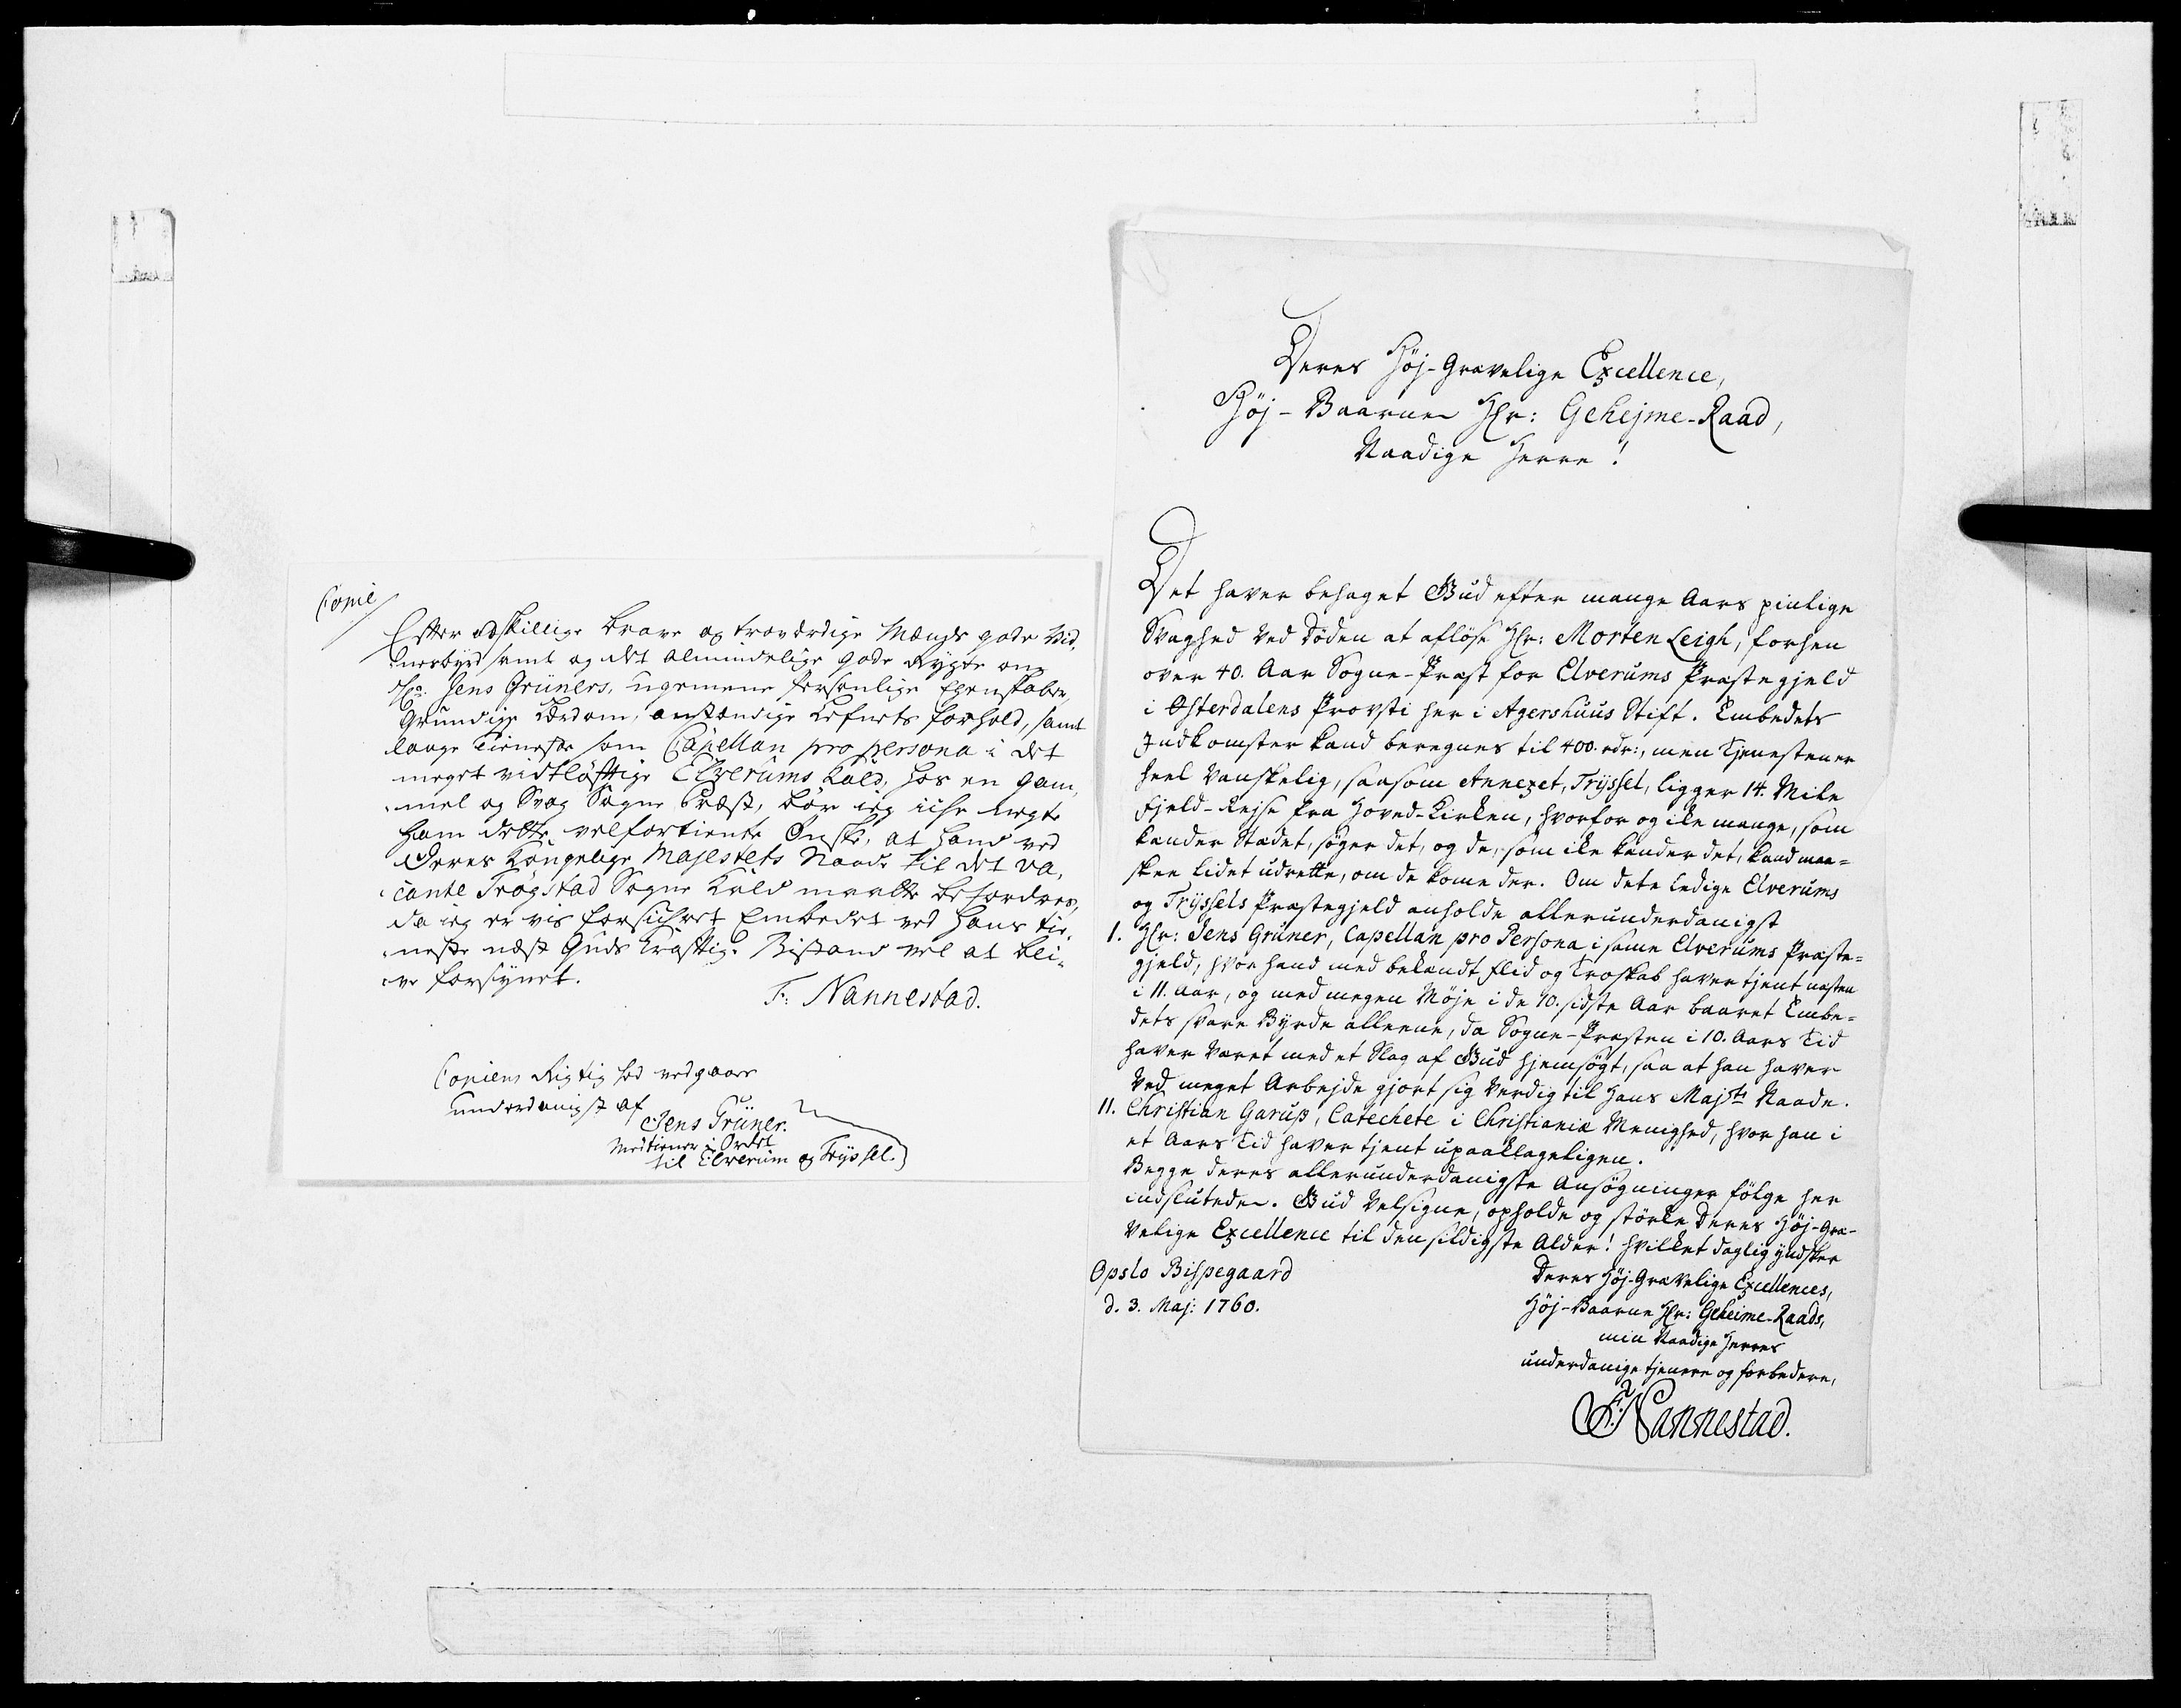 Copie
Efter adskillige brave og troværdige Mænds gode Vid,
nesbyrd samt og det almindelige gode Rygte om
Hr: Jens Grüners, ugemene personlige Egenskaber,
Grundige Lærdom, anstændige Lefnets forhold, samt
lange Tieneste som Capellan pro persona i det
meget vidtløftige Elverums Kald, hos en gam,
mel og Svag Sogne Præst, bør ieg icke negte
ham dette velfortiente Ønske, at hand ved
Deres Kongelige Majestets Naade til det va,
cante Trøgstad Sogne Kald maatte befordres,
da ieg er vis forsickret Embedet ved hans tie,
neste næst Guds Kraftige Bistand vel at bli,
ve forsynet.
F: Nannestad.
Copiens Rigtighed vedgaaes
underdanigst af
Jens Grüner.
Medtiener i Ordet
til Elverum og Tryssel.
Deres Høj-Grævelige Excellence,
Høj-Baarne Hr: Gehejme-Raad,
Naadige Herre!
Det haver behaget Gud efter mange Aars pinlige
Svaghed ved Døden at afløse Hr: Morten Leigh, forhen
over 40. Aar Sogne-Præst for Elverums Præstegjeld
i Østerdalens Provsti her i Agershuus Stift. Embedets
Indkomster kand beregnes til 400. rdr:, men Tjenesten er
heel vanskelig, saasom Annexet, Tryssel, ligger 14. Mile
Fjeld-Rejse fra Hoved-Kirken, hvorfor og ike mange, som
kender Stædet, søger det, og de, som ike kender det, kand maa=
skee lidet udrette, om de kome der. Om dete ledige Elverums
og Tryssels Præstegjeld anholde allerunderdanigst
1. Hr: Jens Grüner, Capellan pro Persona i same Elverums Præste=
gjeld, hvor hand med bekandt Flid og Troskab haver tjent næsten
i 11. Aar, og med megen Møje i de 10. sidste Aar baaret Embe=
dets svare Byrde alleene, da Sogne-Præsten i 10. Aars Tid
haver været med et Slag af Gud hjemsøgt, saa at han haver
ved meget Arbejde gjort sig verdig til Hans Majsts Naade.
11. Christian Garup, Catechete i Christianiæ Menighed, hvor han i
et Aars Tid haver tjent upaaklageligen.
Begge deres allerunderdanigste Ansøgninger følge her
indsluteder. Gud velsigne, opholde og störke Deres Høj-Græ-
velige Excellence til den sildigste Alder! hvilket daglig yndsker
Opslo Bispegaard
d. 3. Maj: 1760.
Deres Høj-Grævelige Excellences,
Høj-Baarne Hr: Geheime-Raads,
min Naadige Herres
underdanige tjenere og forbedere,
F. Nannestad.